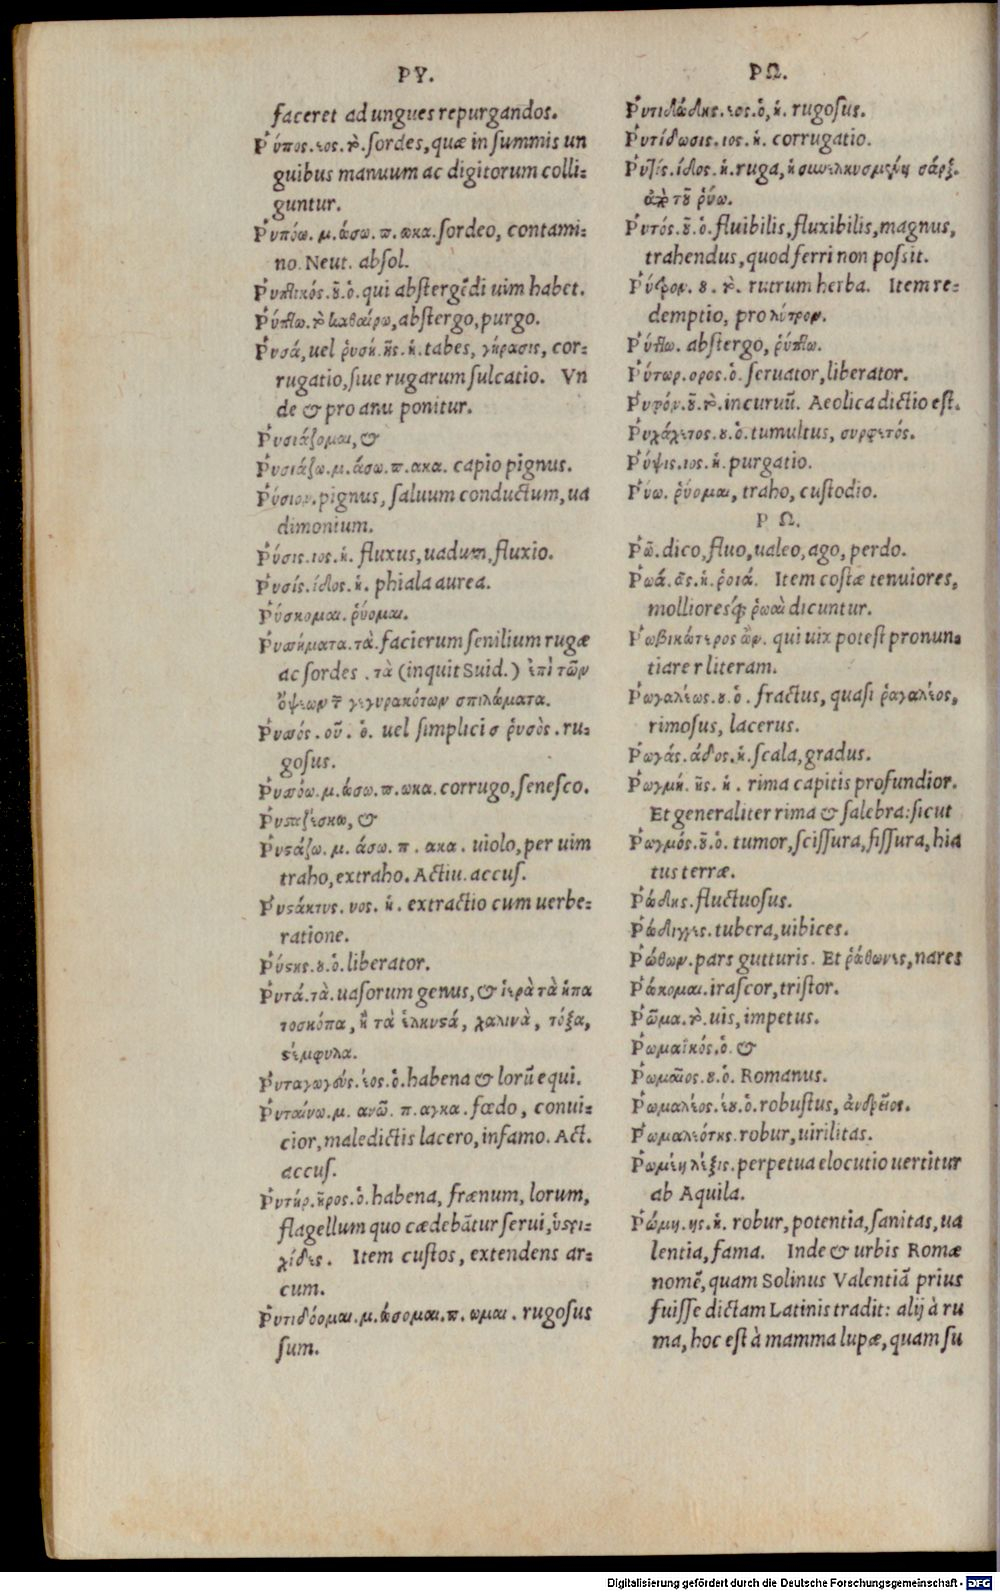 ΡΥ.
faceret ad ungues repurgandos.
Ῥύπος.εος.τὸ.sordes, quæ in summis un
guibus manuum ac digitorum colli=
guntur.
Ῥυπόω.μ.ώσω.π.ωκα.sordeo, contami=
no. Neut. absol.
Ῥυπτικός.οῦ.ὁ.qui abstergẽdi uim habet.
Ῥύπτω.τὸ καθαίρω, abstergo, purgo.
Ῥυσά, uel ῥυσή.ῆς.ἡ.tabes, γήρασις, cor=
rugatio, siue rugarum sulcatio. Vn
de & pro anu ponitur.
Ῥυσιάζομαι, &
Ῥυσιάζω.μ.άσω.π.ακα. capio pignus.
Ῥύσιον.pignus, saluum conductum, ua
dimonium.
Ῥύσις.ιος.ἡ. fluxus, uadum, fluxio.
Ῥυσίς.ίδος.ἡ. phiala aurea.
Ῥύσκομαι.ῥύομαι.
Ῥυσσήματα.τὰ.facierum senilium rugæ
ac sordes .τὰ (inquit Suid.) ἐπὶ τῶν
ὄψεων τ̃ γεγυρακότων σπιλώματα.
Ῥυσσός.οῦ.ὁ. uel simplici σ ῥυσὸς. ru=
gosus.
Ῥυσσόω.μ.ώσω.π.ωκα. corrugo, senesco.
Ῥυσταζέσκω, &
Ῥυστάζω.μ.άσω.π.ακα. uiolo, per uim
traho, extraho. Actiu. accus.
Ῥυστάκτυς.υος.ἡ. extractio cum uerbe=
ratione.
Ῥύστης.ου.ὁ.liberator.
Ῥυτά.τὰ.uasorum genus, & ἱερὰ τὰ ἡπα
τοσκόπα, ἢ τὰ ἑλκυστά, χαλινὰ, τόξα,
στέμφυλα.
Ῥυταγωγεύς.έος.ὁ.habena & lorũ equi.
Ῥυταίνω.μ. ανῶ. π.αγκα. fœdo, conui=
cior, maledictis lacero, infamo. Act.
accus.
Ῥυτήρ.ῆρος.ὁ.habena, frænum, lorum,
flagellum quo cædebãtur serui, ὑστρι=
χίδες. Item custos, extendens ar=
cum.
Ῥυτιδόομαι.μ.ώσομαι.π. ωμαι. rugosus
sum.
ΡΩ.
Ῥυτιδώδης.εος.ὁ, ἡ. rugosus.
Ῥυτίδωσις.ιος.ἡ. corrugatio.
Ῥυτίς.ίδος.ἡ.ruga, ἡ συνειλκυσμένη σάρξ.
ἀπὸ τοῦ ῥύω.
Ῥυτός.οῦ.ὁ.fluibilis, fluxibilis, magnus,
trahendus, quod ferri non possit.
Ῥύτρον. ου. τὸ. rutrum herba. Item re=
demptio, pro λύτρον.
Ῥύτ́ω. abstergo, ῥύπτω.
Ῥύτωρ.ορος.ὁ. seruator, liberator.
Ῥυφόν.οῦ.τὸ.incuruũ. Aeolica dictio est.
Ῥυχάχετος.ου.ὁ.tumultus, συρφετός.
Ῥύψις.ιος.ἡ.purgatio.
Ῥύω. ῥύομαι, traho, custodio.
Ρ Ω.
Ῥῶ. dico, fluo, ualeo, ago, perdo.
Ῥωά.ᾶς.ἡ.ῥοιά. Item costæ tenuiores,
mollioresq́; ῥωαὶ dicuntur.
Ῥωβικώτερος ὢν. qui uix potest pronun=
tiare r literam.
Ῥωγαλέως.ου.ὁ. fractus, quasi ῥαγαλέος,
rimosus, lacerus.
Ῥωγάς.άδος.ἡ.scala, gradus.
Ῥωγμή.ῆς.ἡ. rima capitis profundior.
Et generaliter rima & salebra: sicut
Ῥωγμός.οῦ.ὁ. tumor, scissura, fissura, hia
tus terræ.
Ῥώδης.fluctuosus.
Ῥώδιγγες.tubera, uibices.
Ῥώθων.pars gutturis. Et ῥώθωνες, nares
Ῥώκομαι.irascor, tristor.
Ῥῶμα.τὸ.uis, impetus.
Ῥωμαϊκός.ὁ. &
Ῥωμαῖος.ου.ὁ. Romanus.
Ῥωμαλέος.έου.ὁ.robustus, ἀνδρεῖος.
Ῥωμαλεότης.robur, uirilitas.
Ῥωμένη λέξις.perpetua elocutio uertitur
ab Aquila.
Ῥώμη.ης.ἡ. robur, potentia, sanitas, ua
lentia, fama. Inde & urbis Romæ
nomẽ, quam Solinus Valentiã prius
fuisse dictam Latinis tradit: alij à ru
ma, hoc est à mamma lupæ, quam su
Digitalisierung gefördert durch die Deutsche Forschungsgemeinschaft - DFG